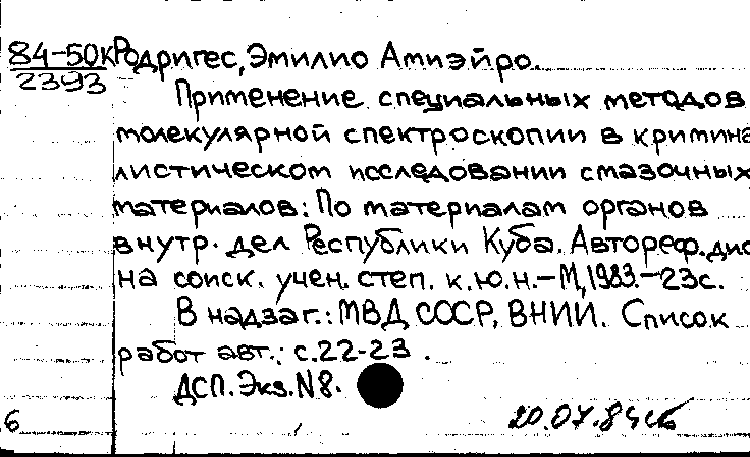 84-50к Родригес, Эмилио Амиэйро.
2393
Применение специальных методов
молекулярной спектроскопии в кримина
листическом исследовании смазочных
материалов: По материалам органов
внутр. дел Республики Куба. Автореф. дис
на соиск. учен. степ. к.ю.н.-М, 1983.-23с.
В надзаг.: МВД СССР, ВНИИ. Список
работ авт.: с.22-23.
ДСП. Экз. N8.
6
20.07.84